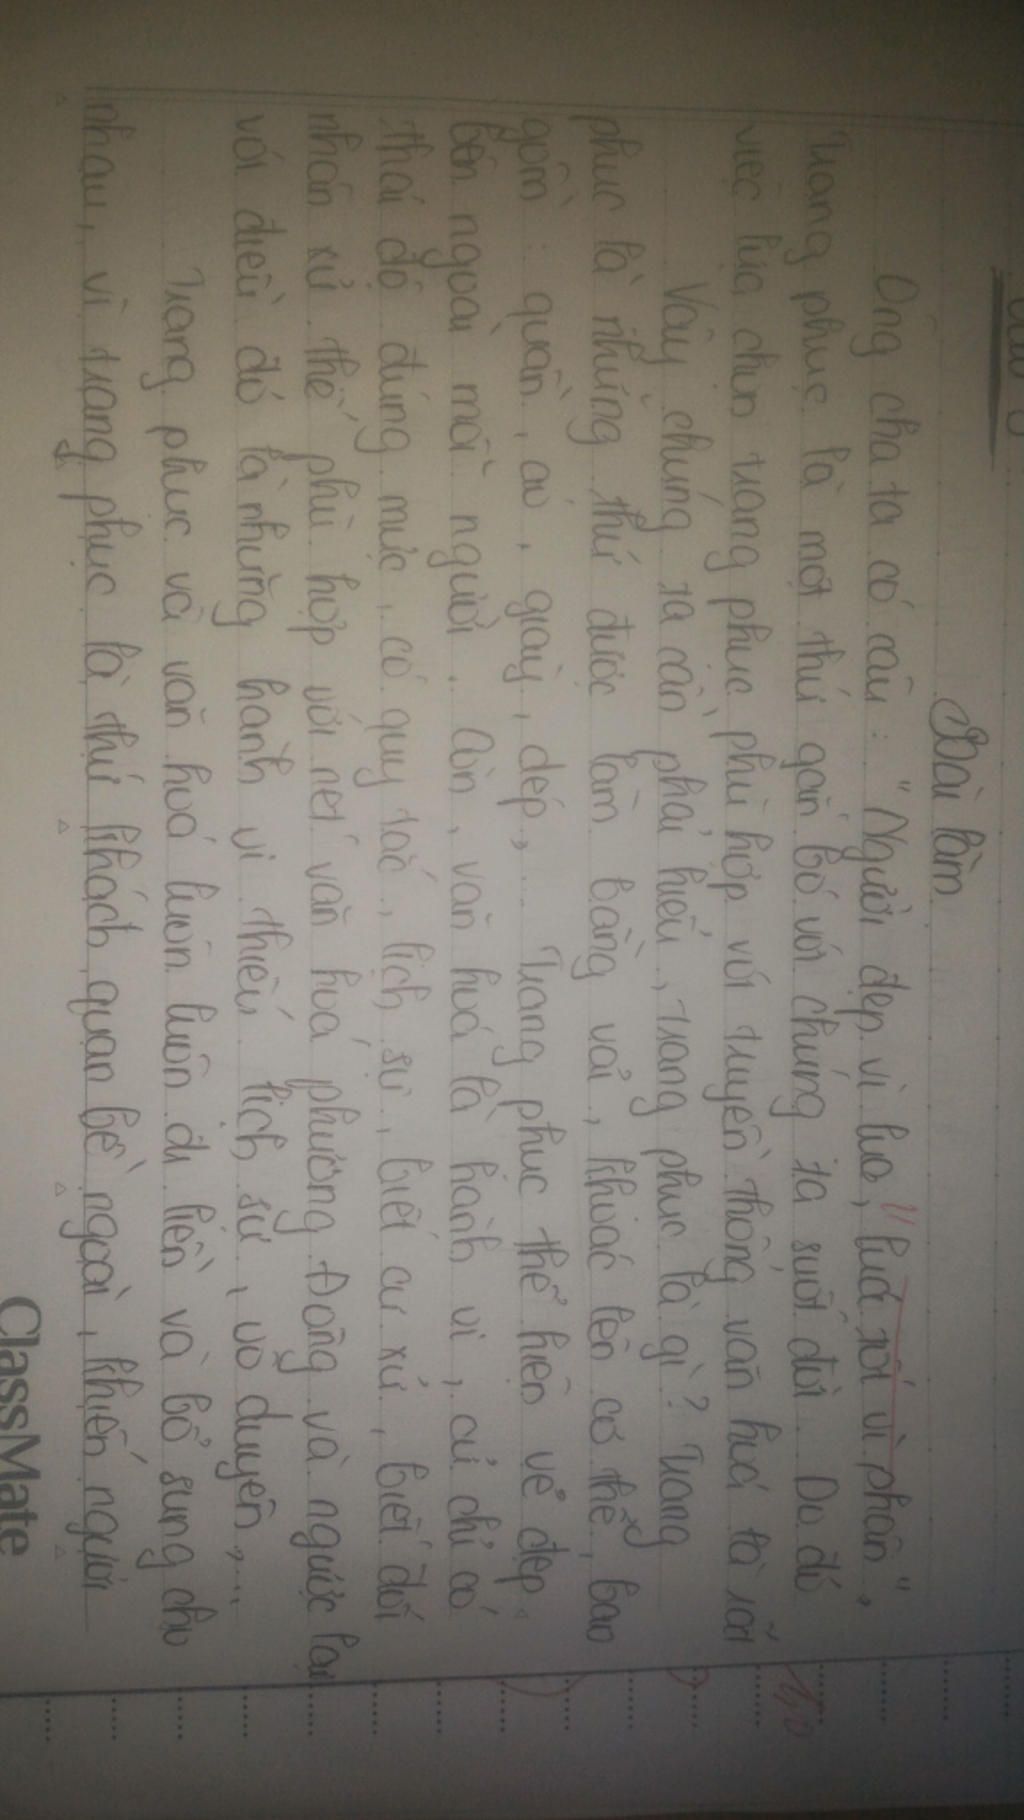 Bài làm
Ông cha ta có câu: "Người đẹp vì lụa, lúa tốt vì phân",
trang phục là một thứ gắn bó với chúng ta suốt đời. Do đó
việc lựa chọn trang phục phù hợp với truyền thống văn hoá là rất
Vậy, chúng ta cần phải hiểu, trang phục là gì? Trang
phục là những thứ được làm bằng vải, khoác lên cơ thể, bao
gồm: quần, áo, giày, dép,... Trang phục thể hiện vẻ đẹp
bên ngoài mỗi người. Còn, văn hoá là hành vi, cử chỉ có
thái độ đúng mực, có quy tắc, lịch sự, biết cư xử, biết đối
nhân xử thế phù hợp với nét văn hoá phương Đông và ngược lại
với điều đó là những hành vi thiếu lịch sự, vô duyên,...
Trang phục và văn hoá luôn luôn đi liền và bổ sung cho
nhau, vì trang phục là thứ khách quan bề ngoài, khiến người
ClassMate